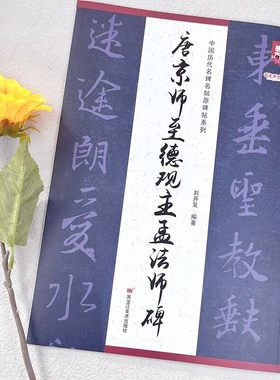 中国历代名碑名帖原碑帖系列
唐京师至德观主孟法师碑
刘开玺 编著
黑龙江美术出版社
东垂圣教猷
迷途朗爱水